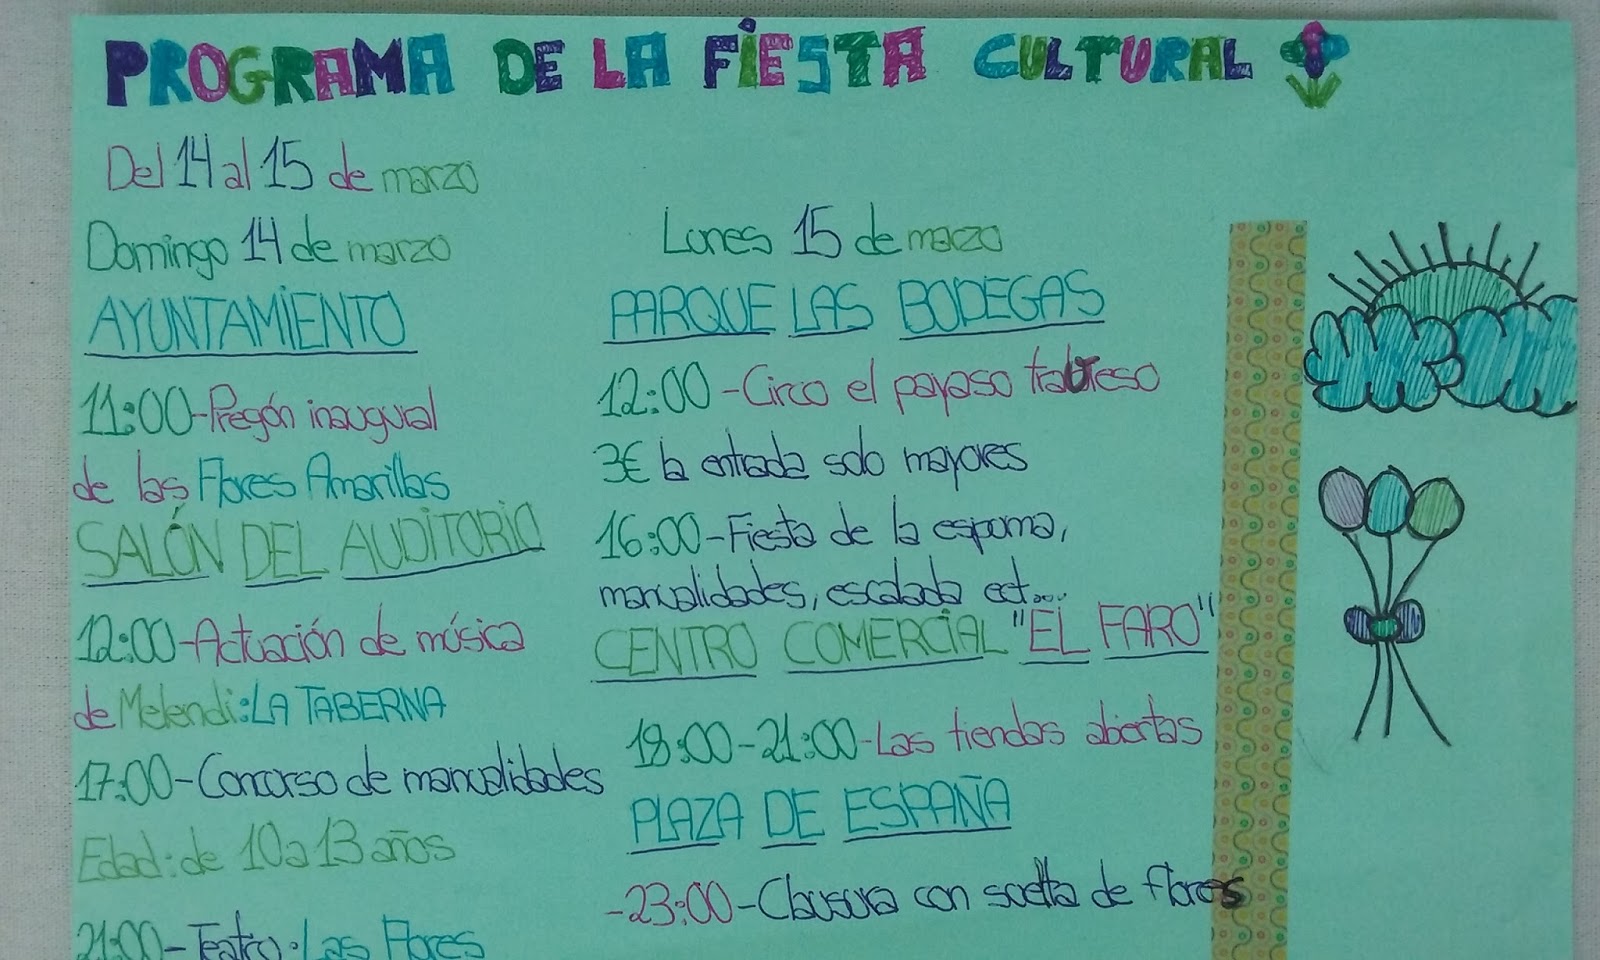 PROGRAMA DE LA FIESTA CULTURAL
Del 14 al 15 de marzo
Domingo 14 de marzo
AYUNTAMIENTO
11:00-Pregón inaugurial
de las Flores Amarillas
SALÓN DEL AUDITORIO
12:00-Actuación de música
de Melendi:LA TABERNA
17:00-Concurso de manualidades
Edad: de 10 a 13 años
21:00-Teatro: Las Flores
Lunes 15 de marzo
PARQUE LAS BODEGAS
12:00-Circo el payaso travieso
3€ la entrada solo mayores
16:00-Fiesta de la espuma,
manualidades, escalada ect...
CENTRO COMERCIAL "EL FARO"
18:00-21:00-Las tiendas abiertas
PLAZA DE ESPAÑA
-23:00-Clausura con suelta de flores